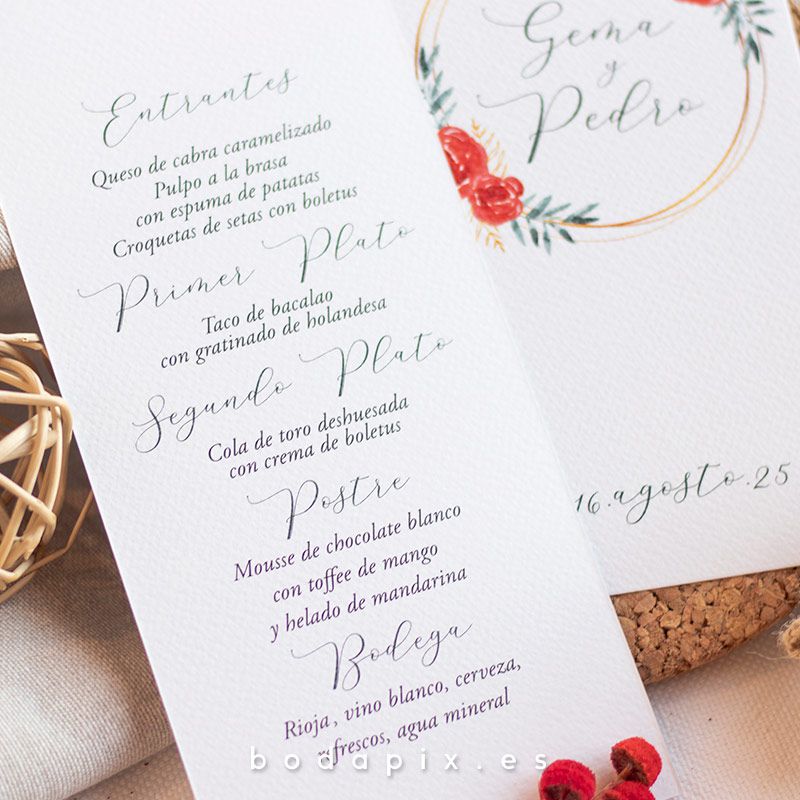 Entrantes
Queso de cabra caramelizado
Pulpo a la brasa
con espuma de patatas
Croquetas de setas con boletus
Primer Plato
Taco de bacalao
con gratinado de holandesa
Segundo Plato
Cola de toro deshuesada
con crema de boletus
Postre
Mousse de chocolate blanco
con toffee de mango
y helado de mandarina
Bodega
Rioja, vino blanco, cerveza,
refrescos, agua mineral
Gema
y
Pedro
16.agosto.25
bodapix.es